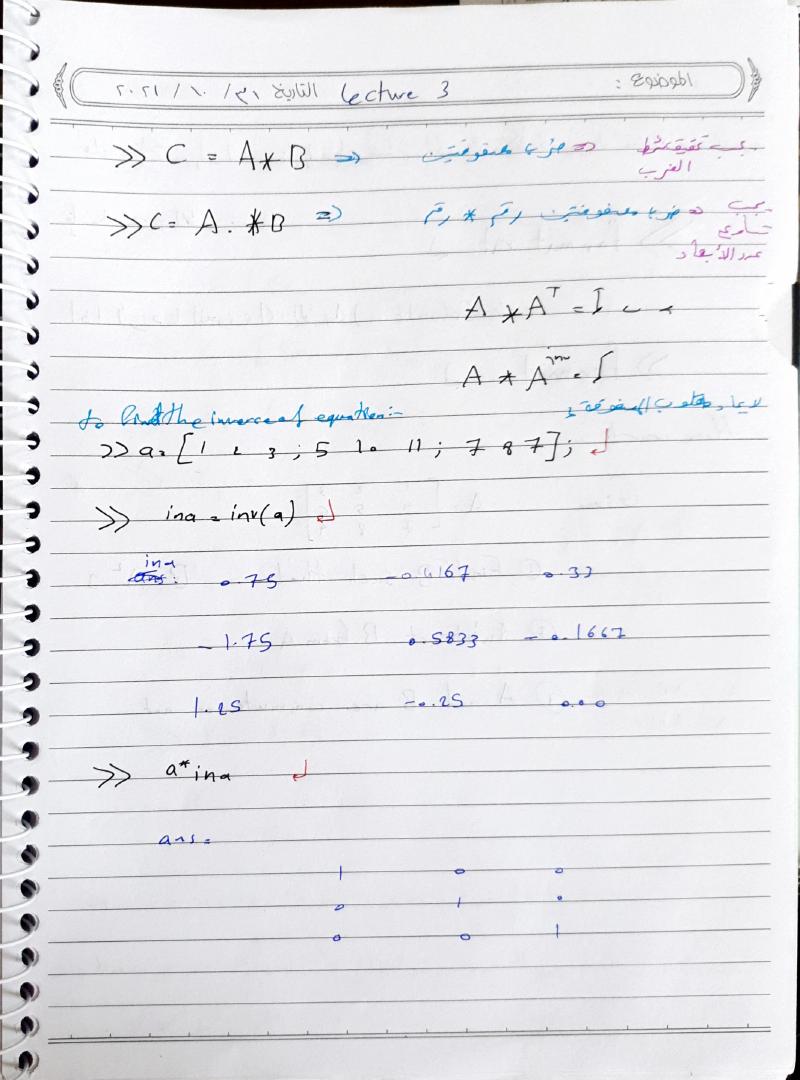 الموضوع : lecture 3 التاريخ ٣١ / ١٠ / ٢٠٢١
>> C = A * B => ضرب مصفوفتين <= يجب تحقيق شرط الضرب
>> C = A . * B => ضرب مصفوفتين رقم * رقم <= يجب تساوي عدد الأبعاد
A * Aᵀ = I
A * A^inv = I
لايجاد مقلوب المصفوفة :
to find the inverse of equation :-
>> a = [ 1 2 3 ; 5 10 11 ; 7 8 7 ] ;
>> ina = inv(a)
ina
0.75 -0.4167 0.33
-1.75 0.5833 -0.1667
1.25 -0.25 0.00
>> a*ina
ans =
1 0 0
0 1 0
0 0 1